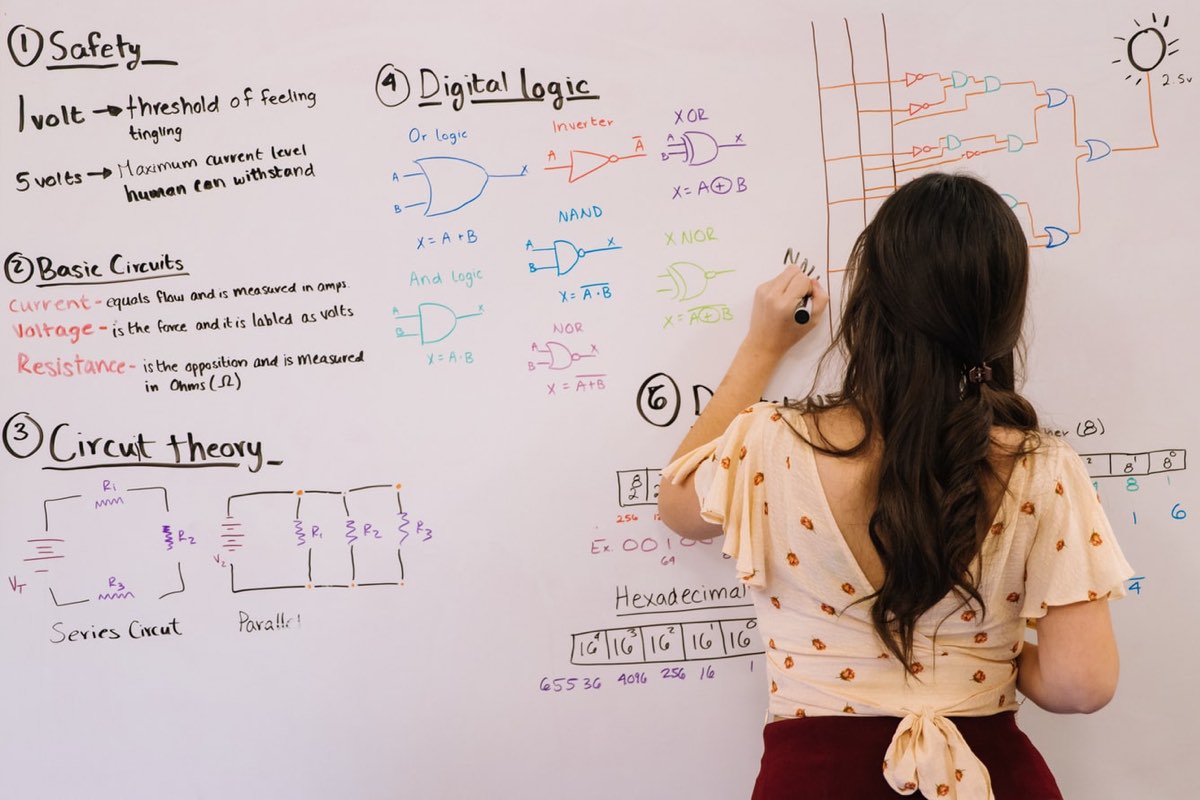 ① Safety
1 volt → threshold of feeling
tingling
5 volts → Maximum current level
human can withstand
② Basic Circuits
Current - equals flow and is measured in amps.
Voltage - is the force and it is labled as volts
Resistance - is the opposition and is measured
in Ohms (Ω)
③ Circuit theory
R1
R2
R3
VT
Series Circut
V2
R1
R2
R3
Parallel
④ Digital logic
Or logic
A
B
X
X = A + B
And logic
A
B
X
X = A·B
Inverter
A
A̅
NAND
A
B
X
X = A̅·̅B̅
NOR
A
B
X
X = A̅+̅B̅
XOR
A
B
X
X = A ⊕ B
X NOR
X = A̅⊕̅B̅
2.5v
⑥ D
(8)
8¹ 8⁰
8 1
1 6
4
256
Ex. 001
64
Hexadecimal
16⁴ 16³ 16² 16¹ 16⁰
65536 4096 256 16 1